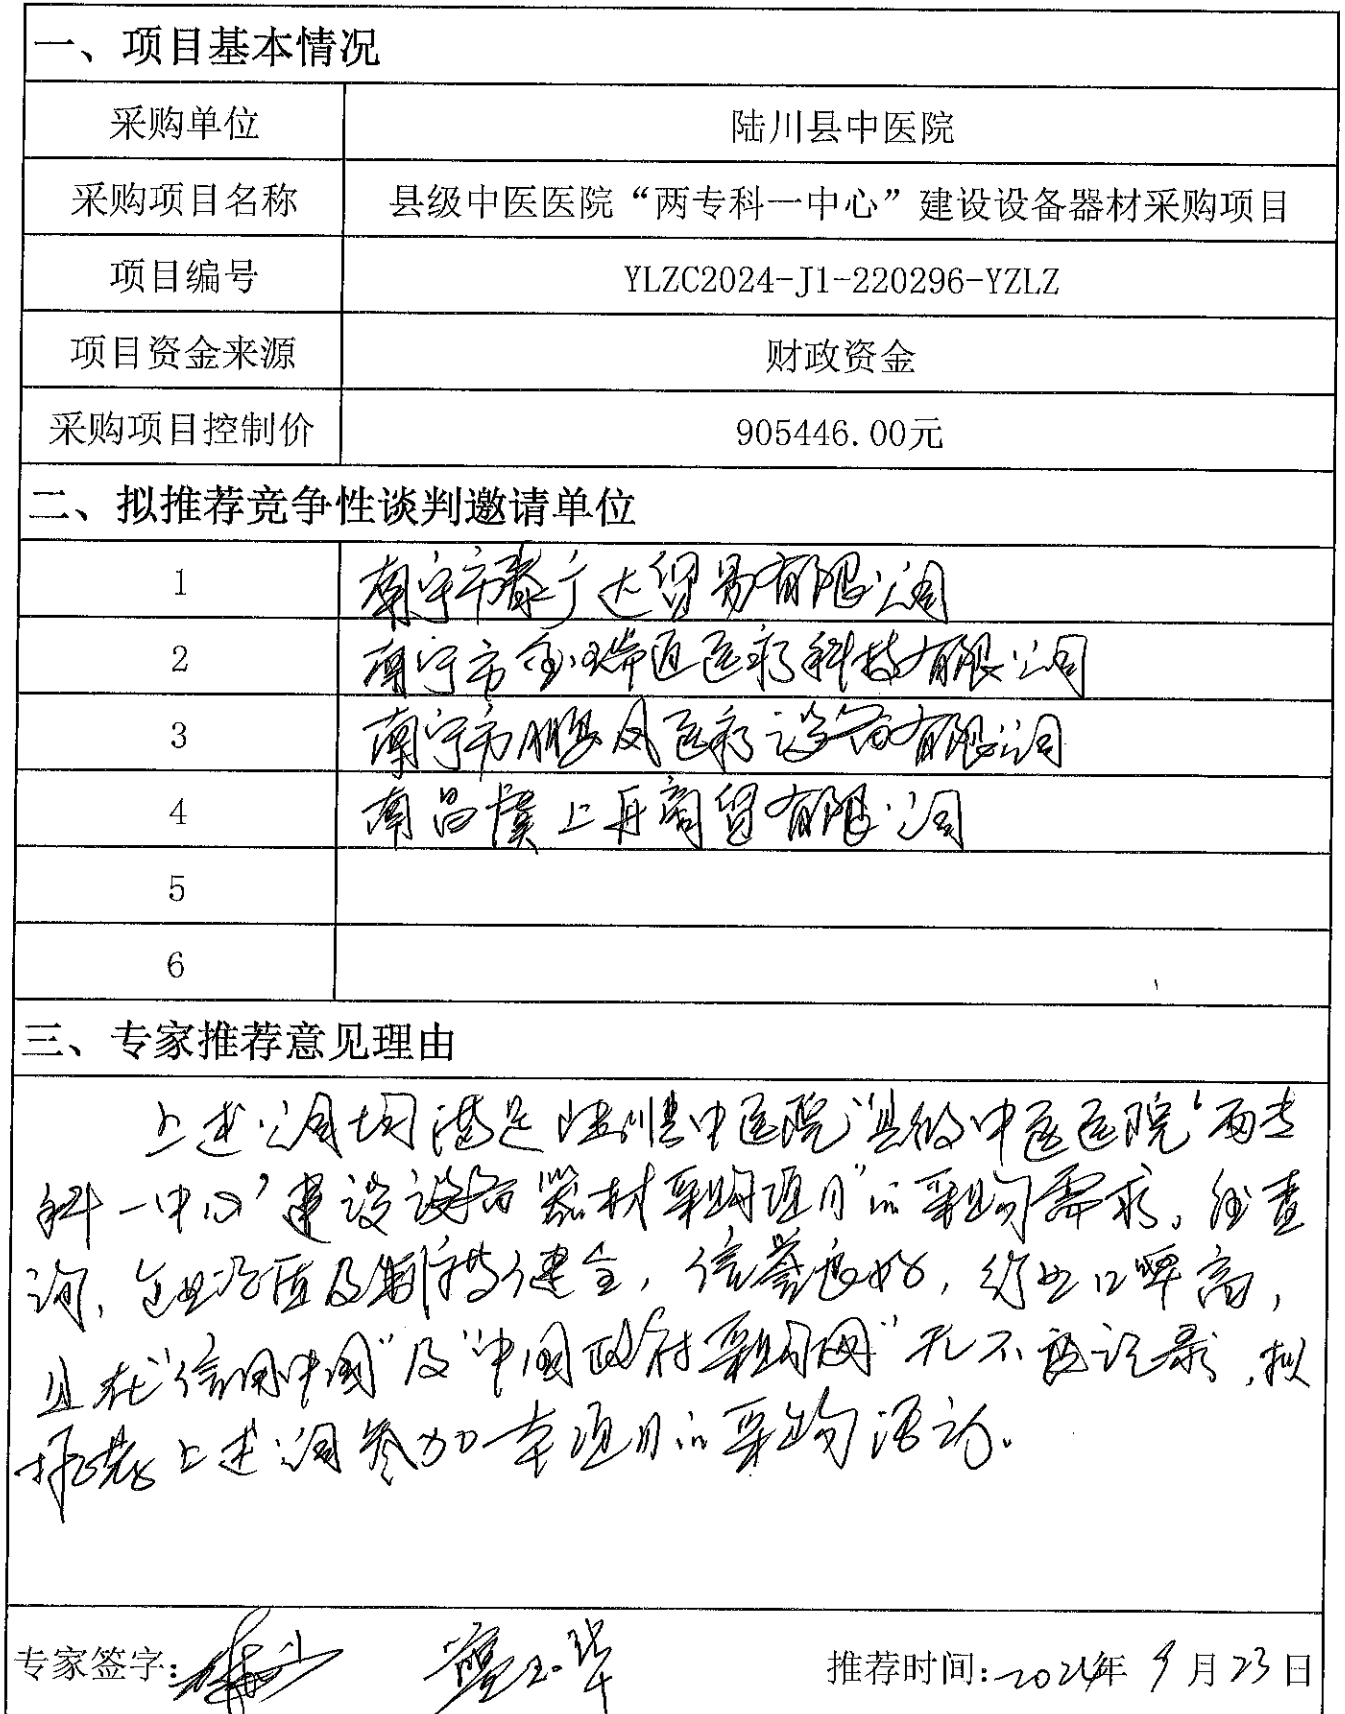 一、项目基本情况
采购单位 陆川县中医院
采购项目名称 县级中医医院“两专科一中心”建设设备器材采购项目
项目编号 YLZC2024-J1-220296-YZLZ
项目资金来源 财政资金
采购项目控制价 905446.00元
二、拟推荐竞争性谈判邀请单位
1 南宁市泰广达贸易有限公司
2 南宁市金瑞医医疗科技有限公司
3 南宁市鹏风医疗设备有限公司
4 南昌虞上舟商贸有限公司
5
6
三、专家推荐意见理由
上述公司均满足陆川县中医院“县级中医医院‘两专
科一中心’建设设备器材采购项目”的采购需求。经查
询，企业资质及制度健全，信誉良好，行业口碑高，
且在“信用中国”及“中国政府采购网”无不良记录，拟
推荐上述公司参加本项目的采购活动。
专家签字： 推荐时间：2024年9月23日